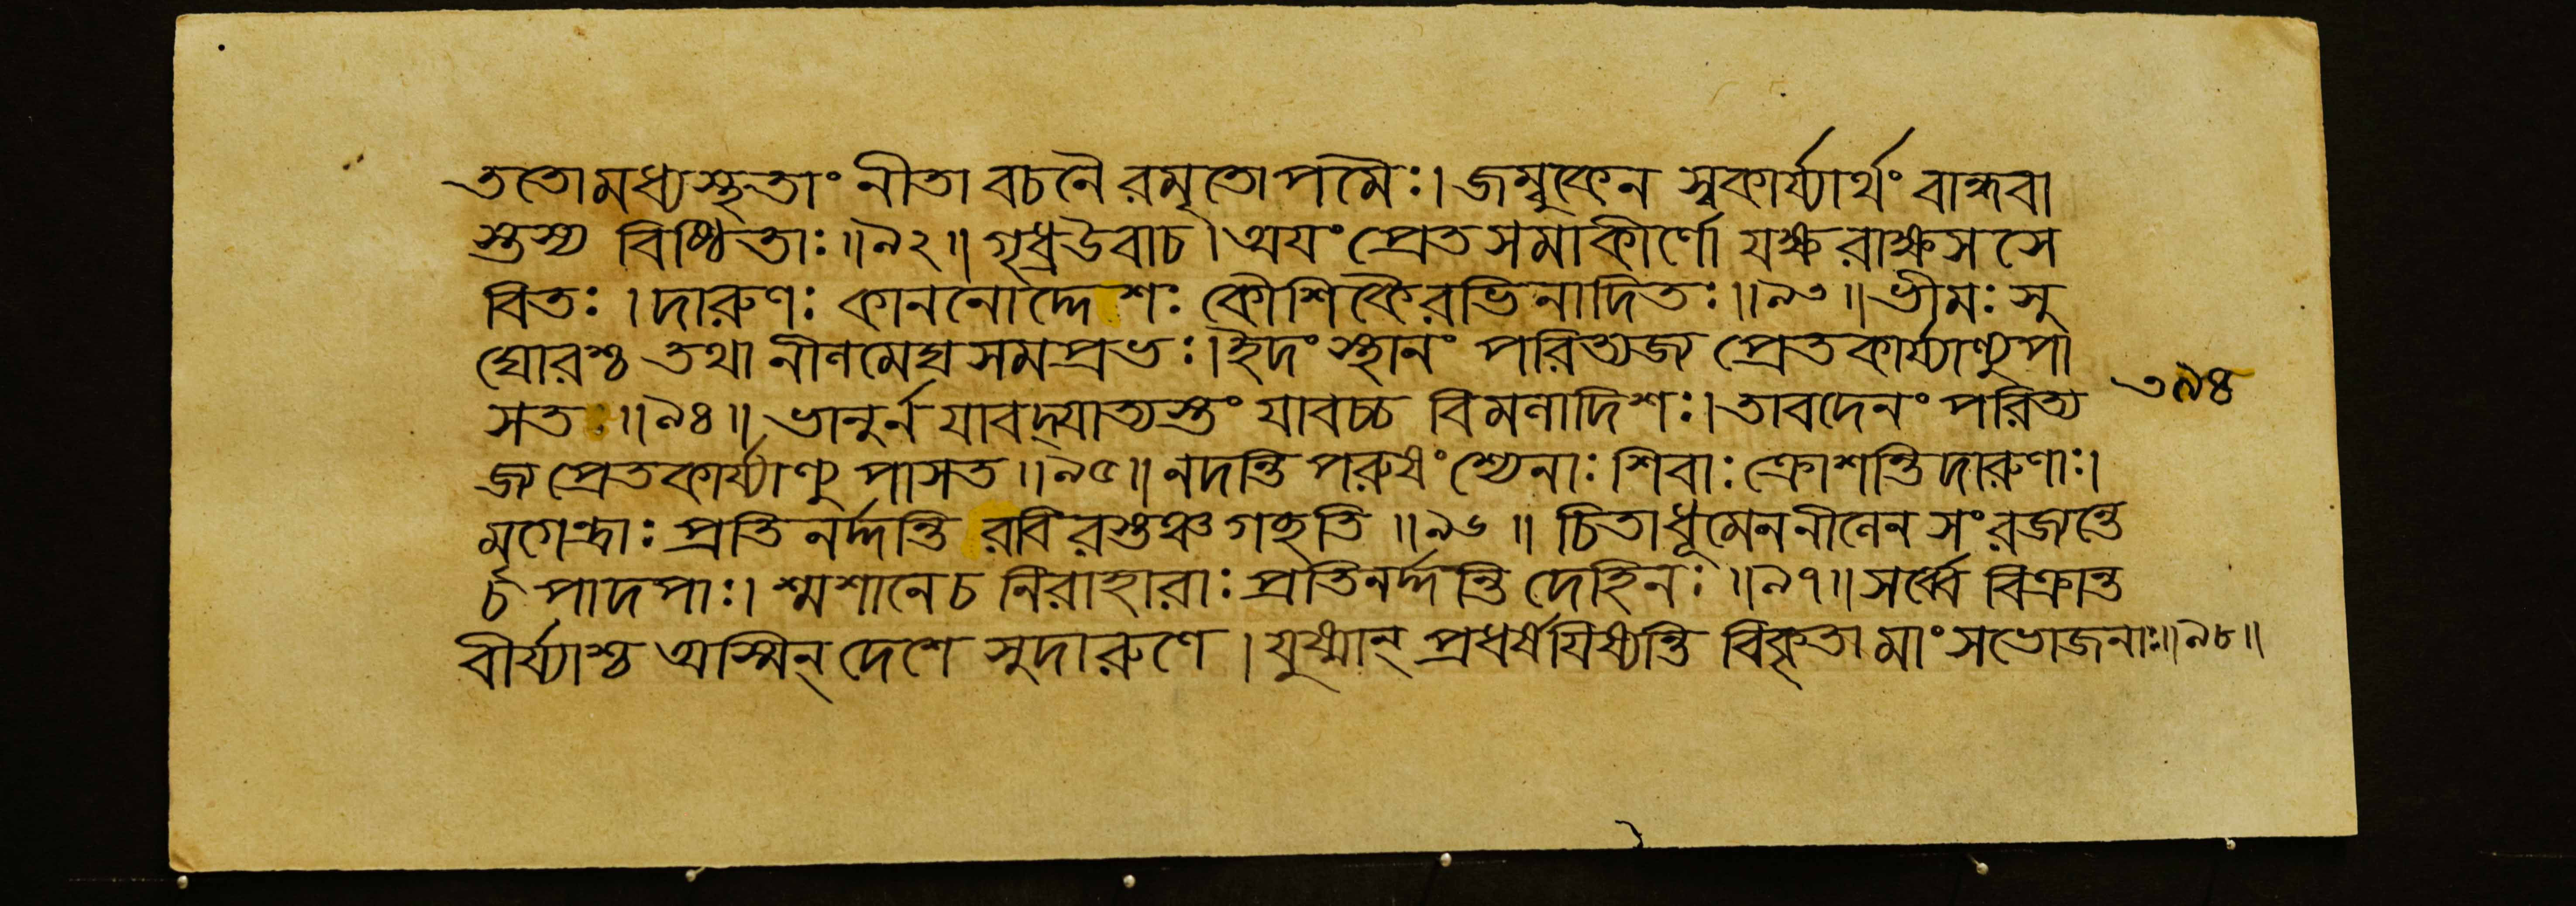 ততোমধ্যস্থতাং নীতা বচনৈ রমৃতোপমৈঃ। জম্বুকেন স্বকার্য্যার্থং বান্ধবা
স্তস্য বিষ্ঠিতাঃ॥৯২॥ গৃধ্রউবাচ।অযং প্রেতসমাকীর্ণো যক্ষরাক্ষসসে
বিতঃ।দারুণঃ কাননোদ্দেশঃ কৌশিকৈরভিনাদিতঃ॥৯৩॥ভীমঃ সু
ঘোরশ্চ তথা নীলমেঘসমপ্রভঃ।ইদং স্থানং পরিত্যজ্য প্রেতকার্য্যাণ্যুপা
সত॥৯৪॥ ভানুর্ন যাবদ্যাত্যস্তং যাবচ্চ বিমলাদিশঃ।তাবদেনং পরিত্য
৩৯৪
জ্য প্রেতকার্য্যাণ্যুপাসত॥৯৫॥নদন্তি পরুষং শ্যেনাঃ শিবাঃ ক্রোশন্তিদারুণাঃ।
মৃগেন্দ্রাঃ প্রতিনর্দ্দন্তি রবিরস্তঞ্চ গচ্ছতি॥৯৬॥ চিতাধূমেননীলেন সংরজ্যন্তে
চ পাদপাঃ। শ্মশানেচ নিরাহারাঃ প্রতিনর্দ্দন্তি দেহিনঃ॥৯৭॥সর্ব্বে বিক্রান্ত
বীর্য্যাশ্চ অস্মিন্ দেশে সুদারুণে। যুষ্মান্ প্রধর্ষযিষ্যন্তি বিকৃতা মাংসভোজনাঃ॥৯৮॥